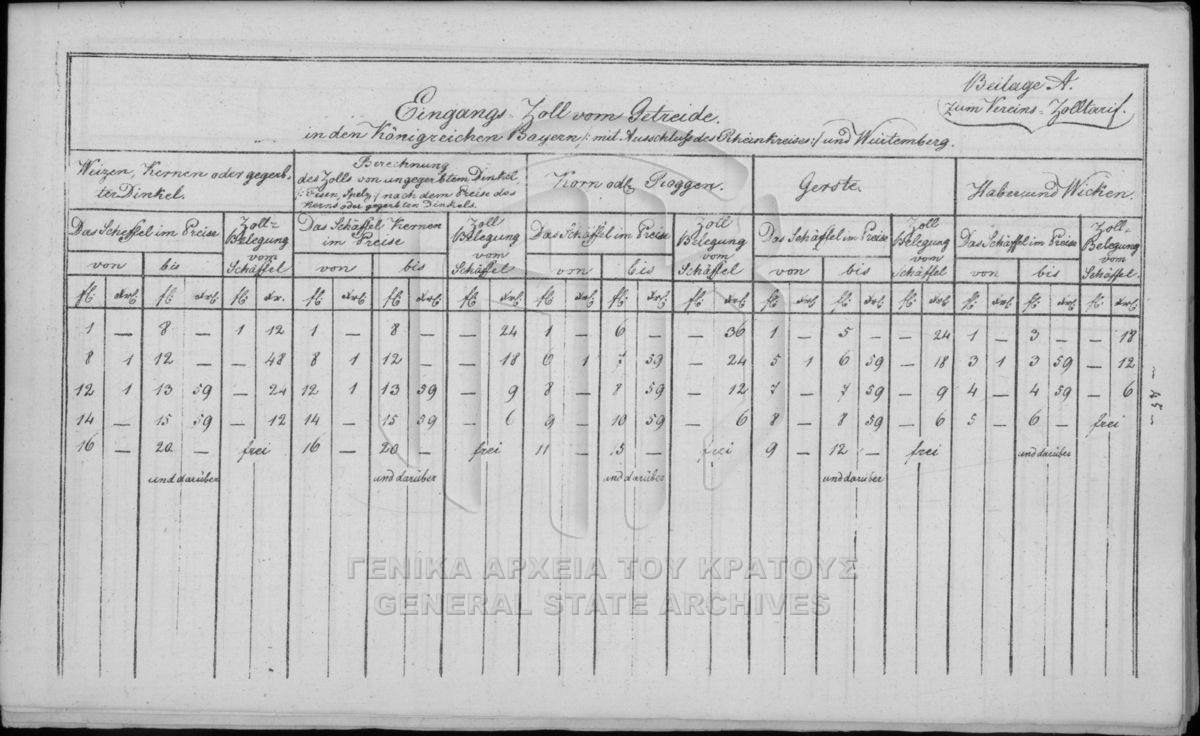 Beilage A.
zum Vereins-Zolltarif.
Eingangs-Zoll vom Getreide.
in den Königreichen Bayern /: mit Ausschluß des Rheinkreises :/ und Würtemberg.
Weizen, Kernen oder gegerb-
ter Dinkel.
Berechnung
des Zolls von ungegerbtem Dinkel,
/: Fesen, Spelz :/ nach dem Preise des
Kerns oder gegerbten Dinkels.
Korn od. Roggen.
Gerste.
Haber und Wicken.
Das Scheffel im Preise
Zoll-
Belegung
vom
Schäffel
Das Schäffel Kernen
im Preise
Zoll
Belegung
vom
Schäffel
Das Schäffel im Preise
Zoll
Belegung
vom
Schäffel
Das Schäffel im Preise
Zoll
Belegung
vom
Schäffel
Das Schäffel im Preise
Zoll-
Belegung
vom
Schäffel.
von bis von bis von bis von bis von bis
fl. xr. fl. xr. fl. xr. fl. xr. fl. xr. fl. xr. fl. xr. fl. xr. fl. xr. fl. xr. fl. xr. fl. xr. fl. xr. fl. xr. fl. xr.
1 — 8 — 1 12 1 — 8 — — 24 1 — 6 — — 36 1 — 5 — — 24 1 — 3 — — 18
8 1 12 — — 48 8 1 12 — — 18 6 1 7 59 — 24 5 1 6 59 — 18 3 1 3 59 — 12
12 1 13 59 — 24 12 1 13 59 — 9 8 — 8 59 — 12 7 — 7 59 — 9 4 — 4 59 — 6
14 — 15 59 — 12 14 — 15 59 — 6 9 — 10 59 — 6 8 — 8 59 — 6 5 — 6 — frei
16 — 20 — frei 16 — 20 — frei 11 — 15 — frei 9 — 12 — frei und darüber
und darüber und darüber und darüber und darüber
— 45 —
ΓΕΝΙΚΑ ΑΡΧΕΙΑ ΤΟΥ ΚΡΑΤΟΥΣ
GENERAL STATE ARCHIVES